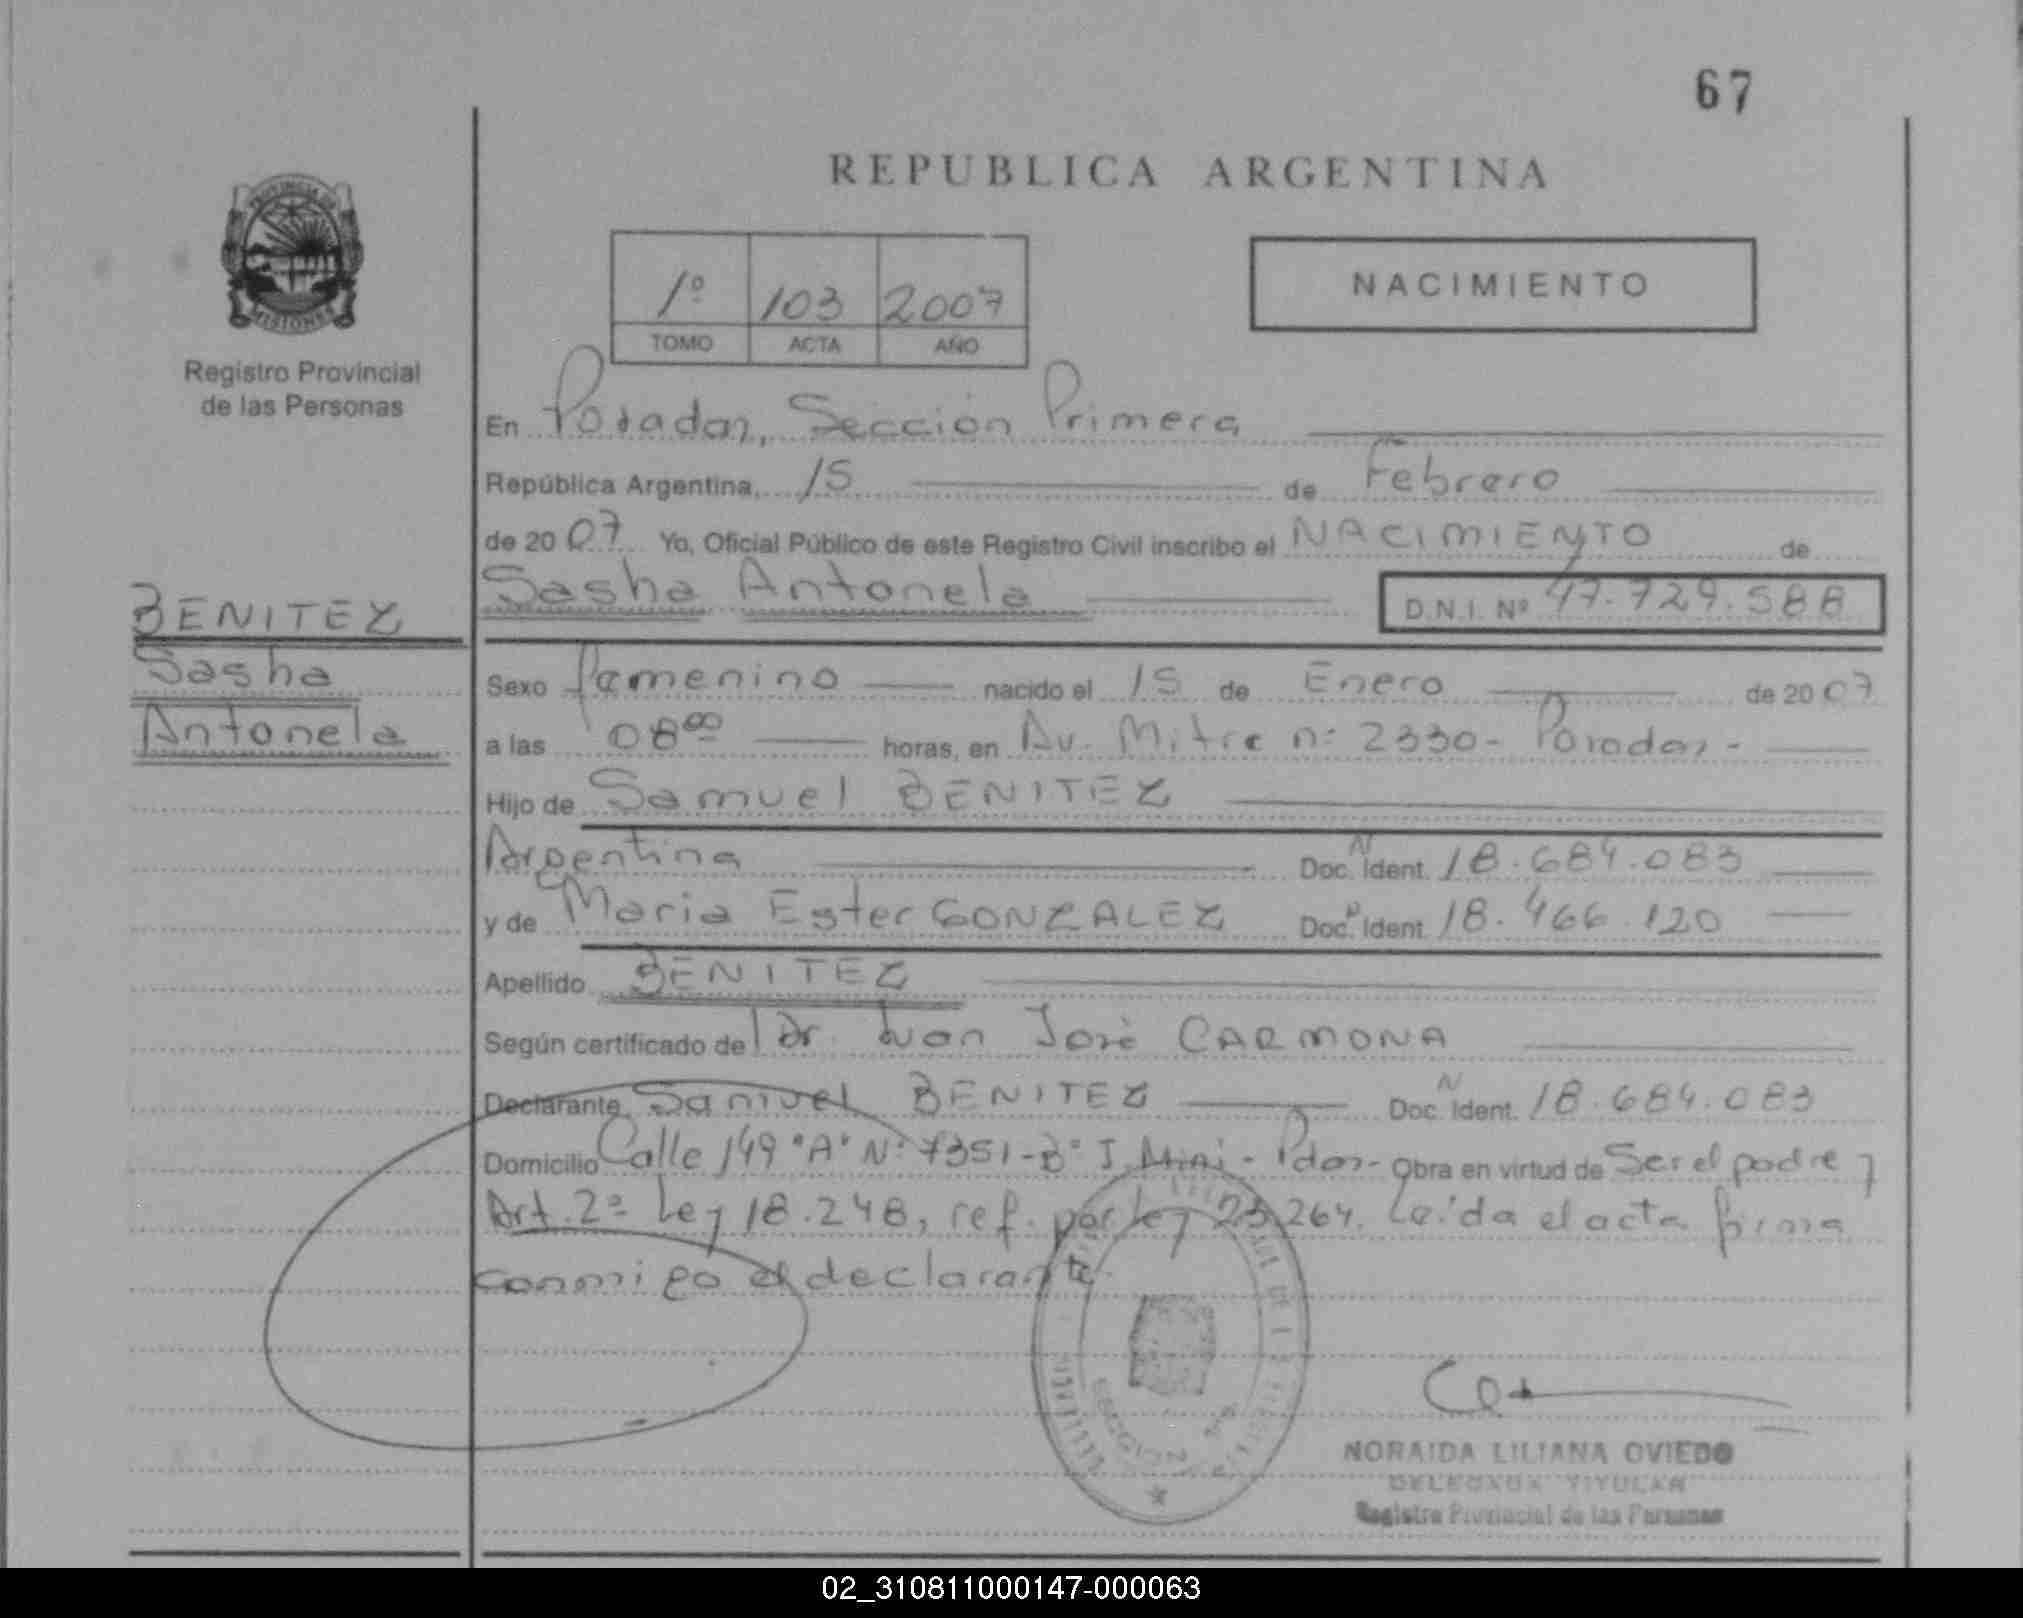 67
REPUBLICA ARGENTINA
PROVINCIA DE
MISIONES
Registro Provincial
de las Personas
1º 103 2007
TOMO ACTA AÑO
NACIMIENTO
En Posadas, Sección Primera
República Argentina, 15 de Febrero
de 2007 Yo, Oficial Público de este Registro Civil inscribo el NACIMIENTO de
Sasha Antonela D.N.I. Nº 47.729.588
BENITEZ
Sasha
Antonela
Sexo femenino nacido el 15 de Enero de 2007
a las 08⁰⁰ horas, en Av. Mitre nº 2330- Posadas-
Hijo de Samuel BENITEZ
Argentina Doc. N Ident. 18.684.083
y de Maria Ester GONZALEZ Doc. Ident. 18.466.120
Apellido BENITEZ
Según certificado del Dr. Juan José CARMONA
Declarante Samuel BENITEZ Doc. N Ident. 18.684.083
Domicilio Calle 149 "A" Nº 7351-Bº I. Mini - Pdas- Obra en virtud de Ser el padre y
Art. 2º Ley 18.248, ref. por ley 23.264. Leída el acta firma
conmigo el declarante.
NORAIDA LILIANA OVIEDO
DELEGADA TITULAR
Registro Provincial de las Personas
02_310811000147-000063